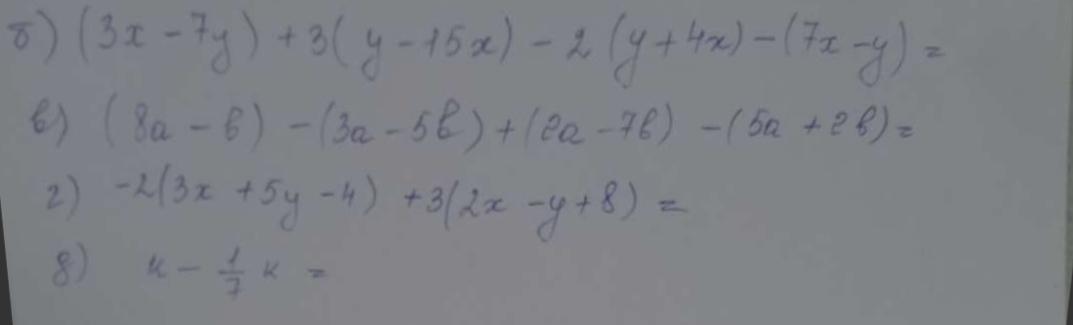 б) (3x - 7y) + 3(y - 15x) - 2(y + 4x) - (7x - y) =
в) (8a - b) - (3a - 5b) + (2a - 7b) - (5a + 2b) =
г) -2(3x + 5y - 4) + 3(2x - y + 8) =
д) к - 1/7 к =